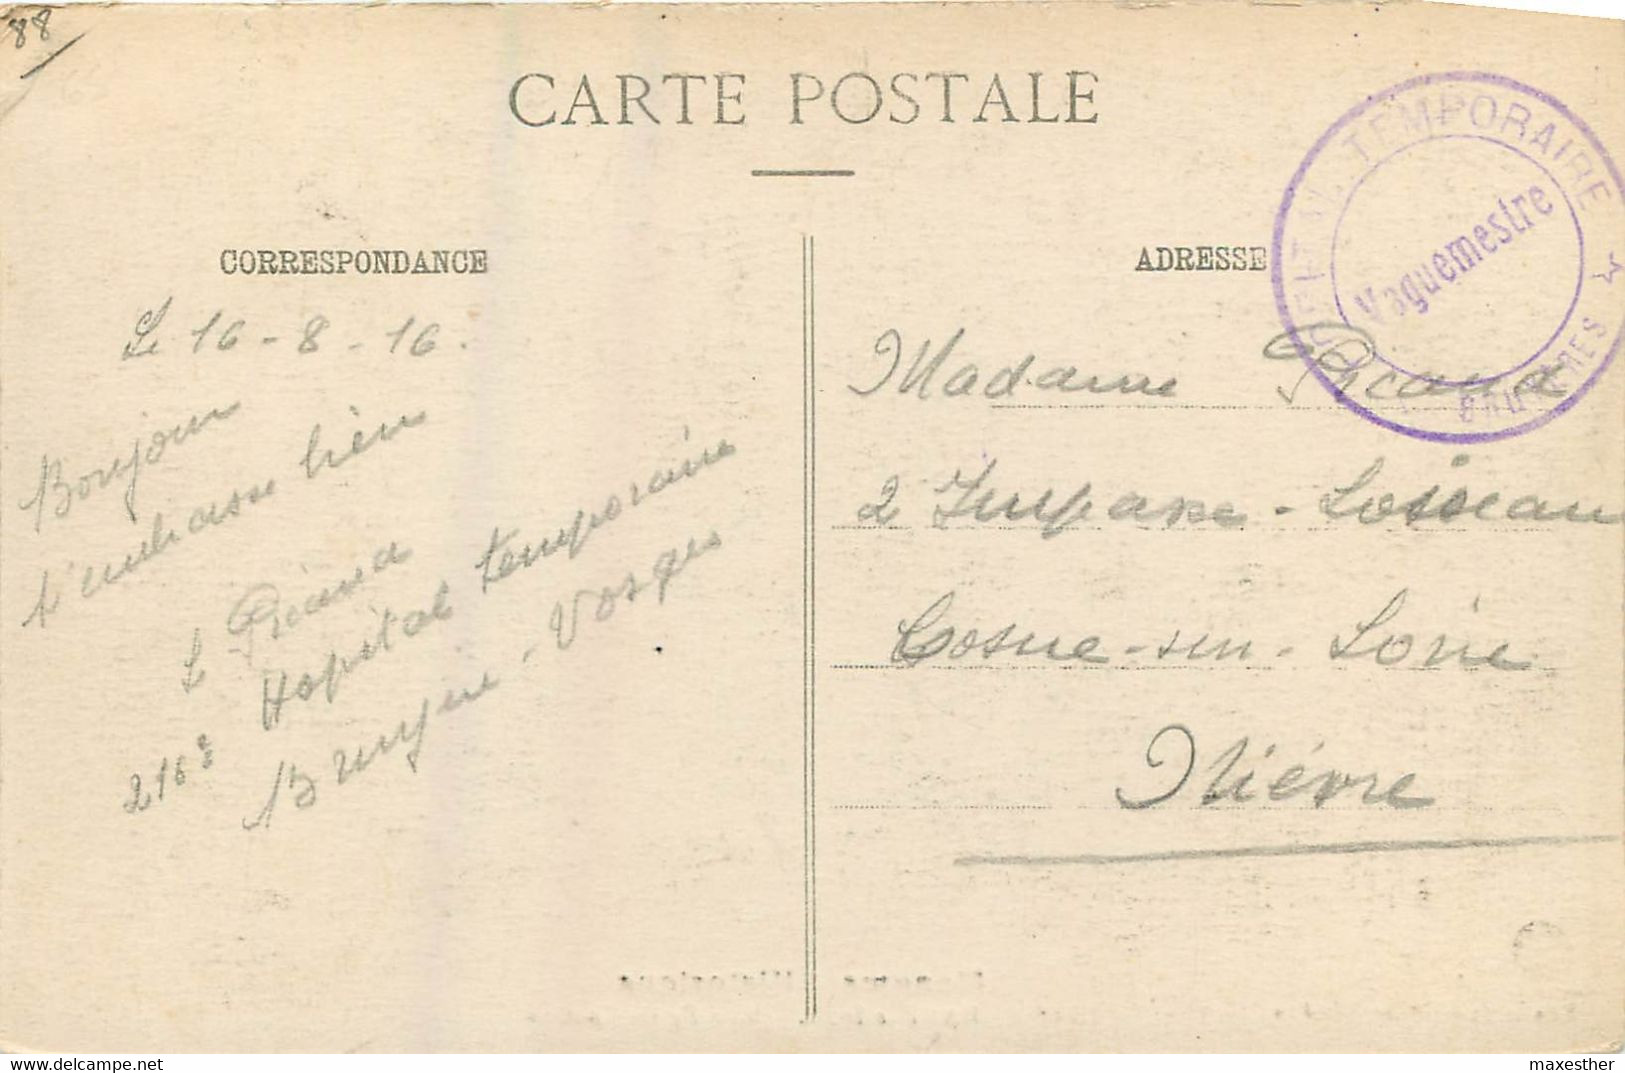 88
CARTE POSTALE
CORRESPONDANCE
Le 16-8-16.
Bonjour
t'embrasse bien
L Picand
216e Hopital temporaire
Bruyère - Vosges
ADRESSE
HOPITAL TEMPORAIRE
Vaguemestre
BRUYERES
Madame Picand
2 Impasse - Loiseau
Cosne-sur-Loire
Nièvre
www.delcampe.net
maxesther